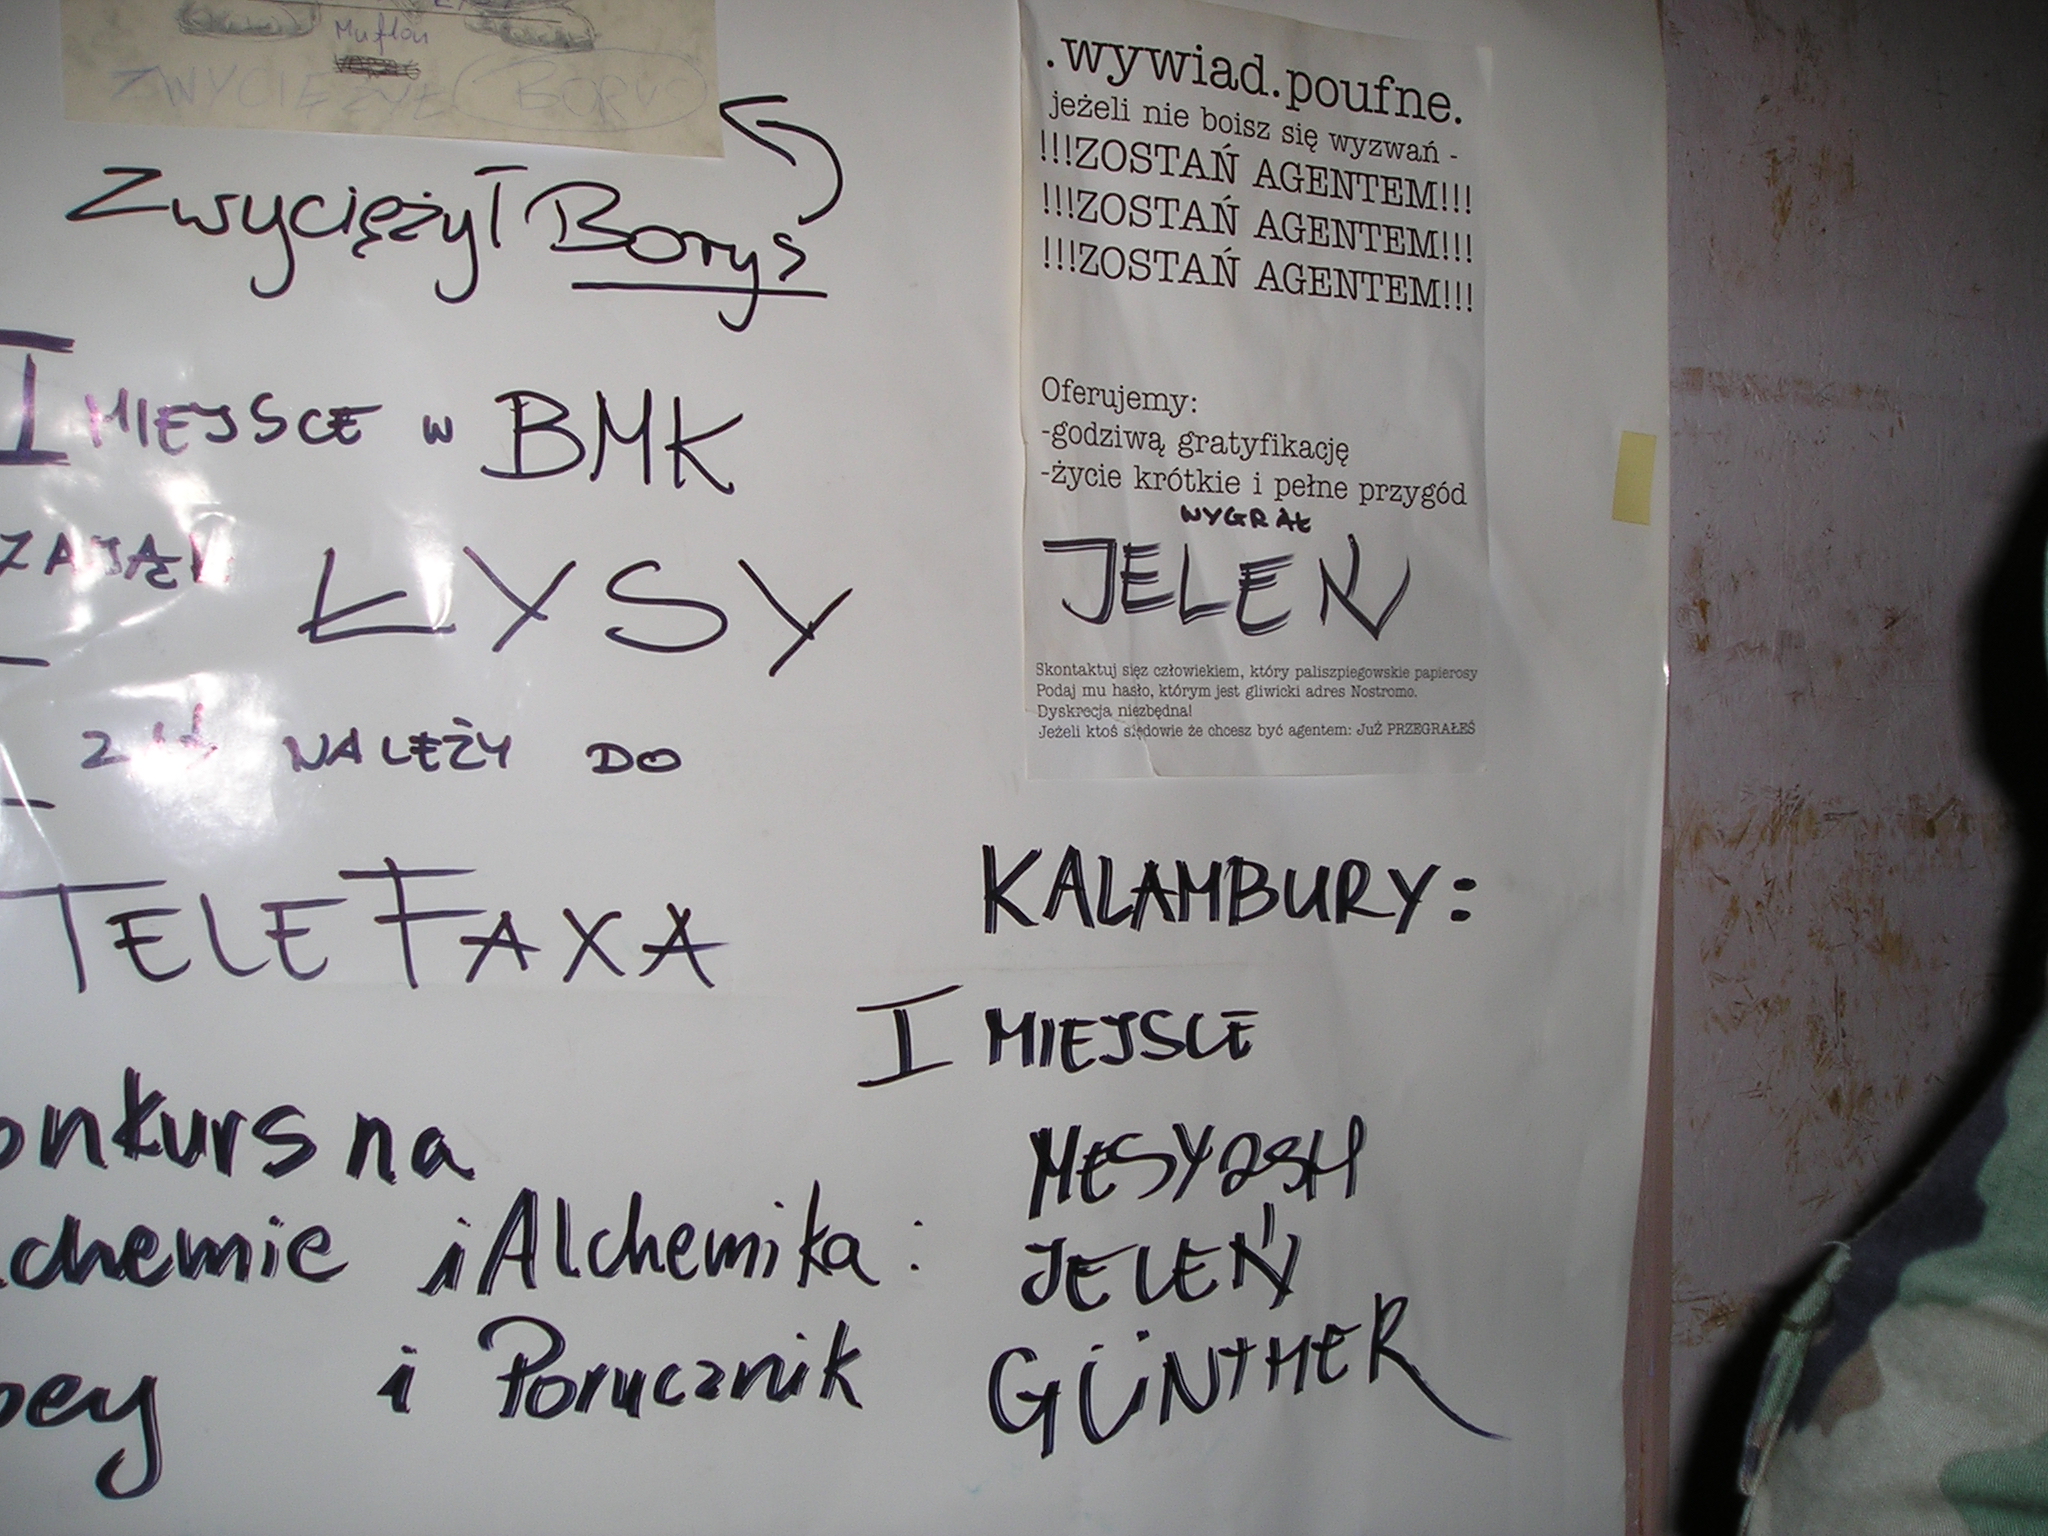 Muflon
ZWYCIĘŻYŁ BORYS
Zwyciężył Borys
I MIEJSCE W BMK
ZAJĄŁ ŁYSY
NALEŻY DO
TELEFAXA
onkurs na
chemie i Alchemika:
i Porucznik
.wywiad.poufne.
jeżeli nie boisz się wyzwań -
!!!ZOSTAŃ AGENTEM!!!
!!!ZOSTAŃ AGENTEM!!!
!!!ZOSTAŃ AGENTEM!!!
Oferujemy:
-godziwą gratyfikację
-życie krótkie i pełne przygód
WYGRAŁ
JELEŃ
Skontaktuj sięz człowiekiem, który paliszpiegowskie papierosy
Podaj mu hasło, którym jest gliwicki adres Nostromo.
Dyskrecja niezbędna!
Jeżeli ktoś siędowie że chcesz być agentem: JuŻ PRZEGRAŁEŚ
KALAMBURY:
I MIEJSCE
MESYASH
JELEŃ
GÜNTHER